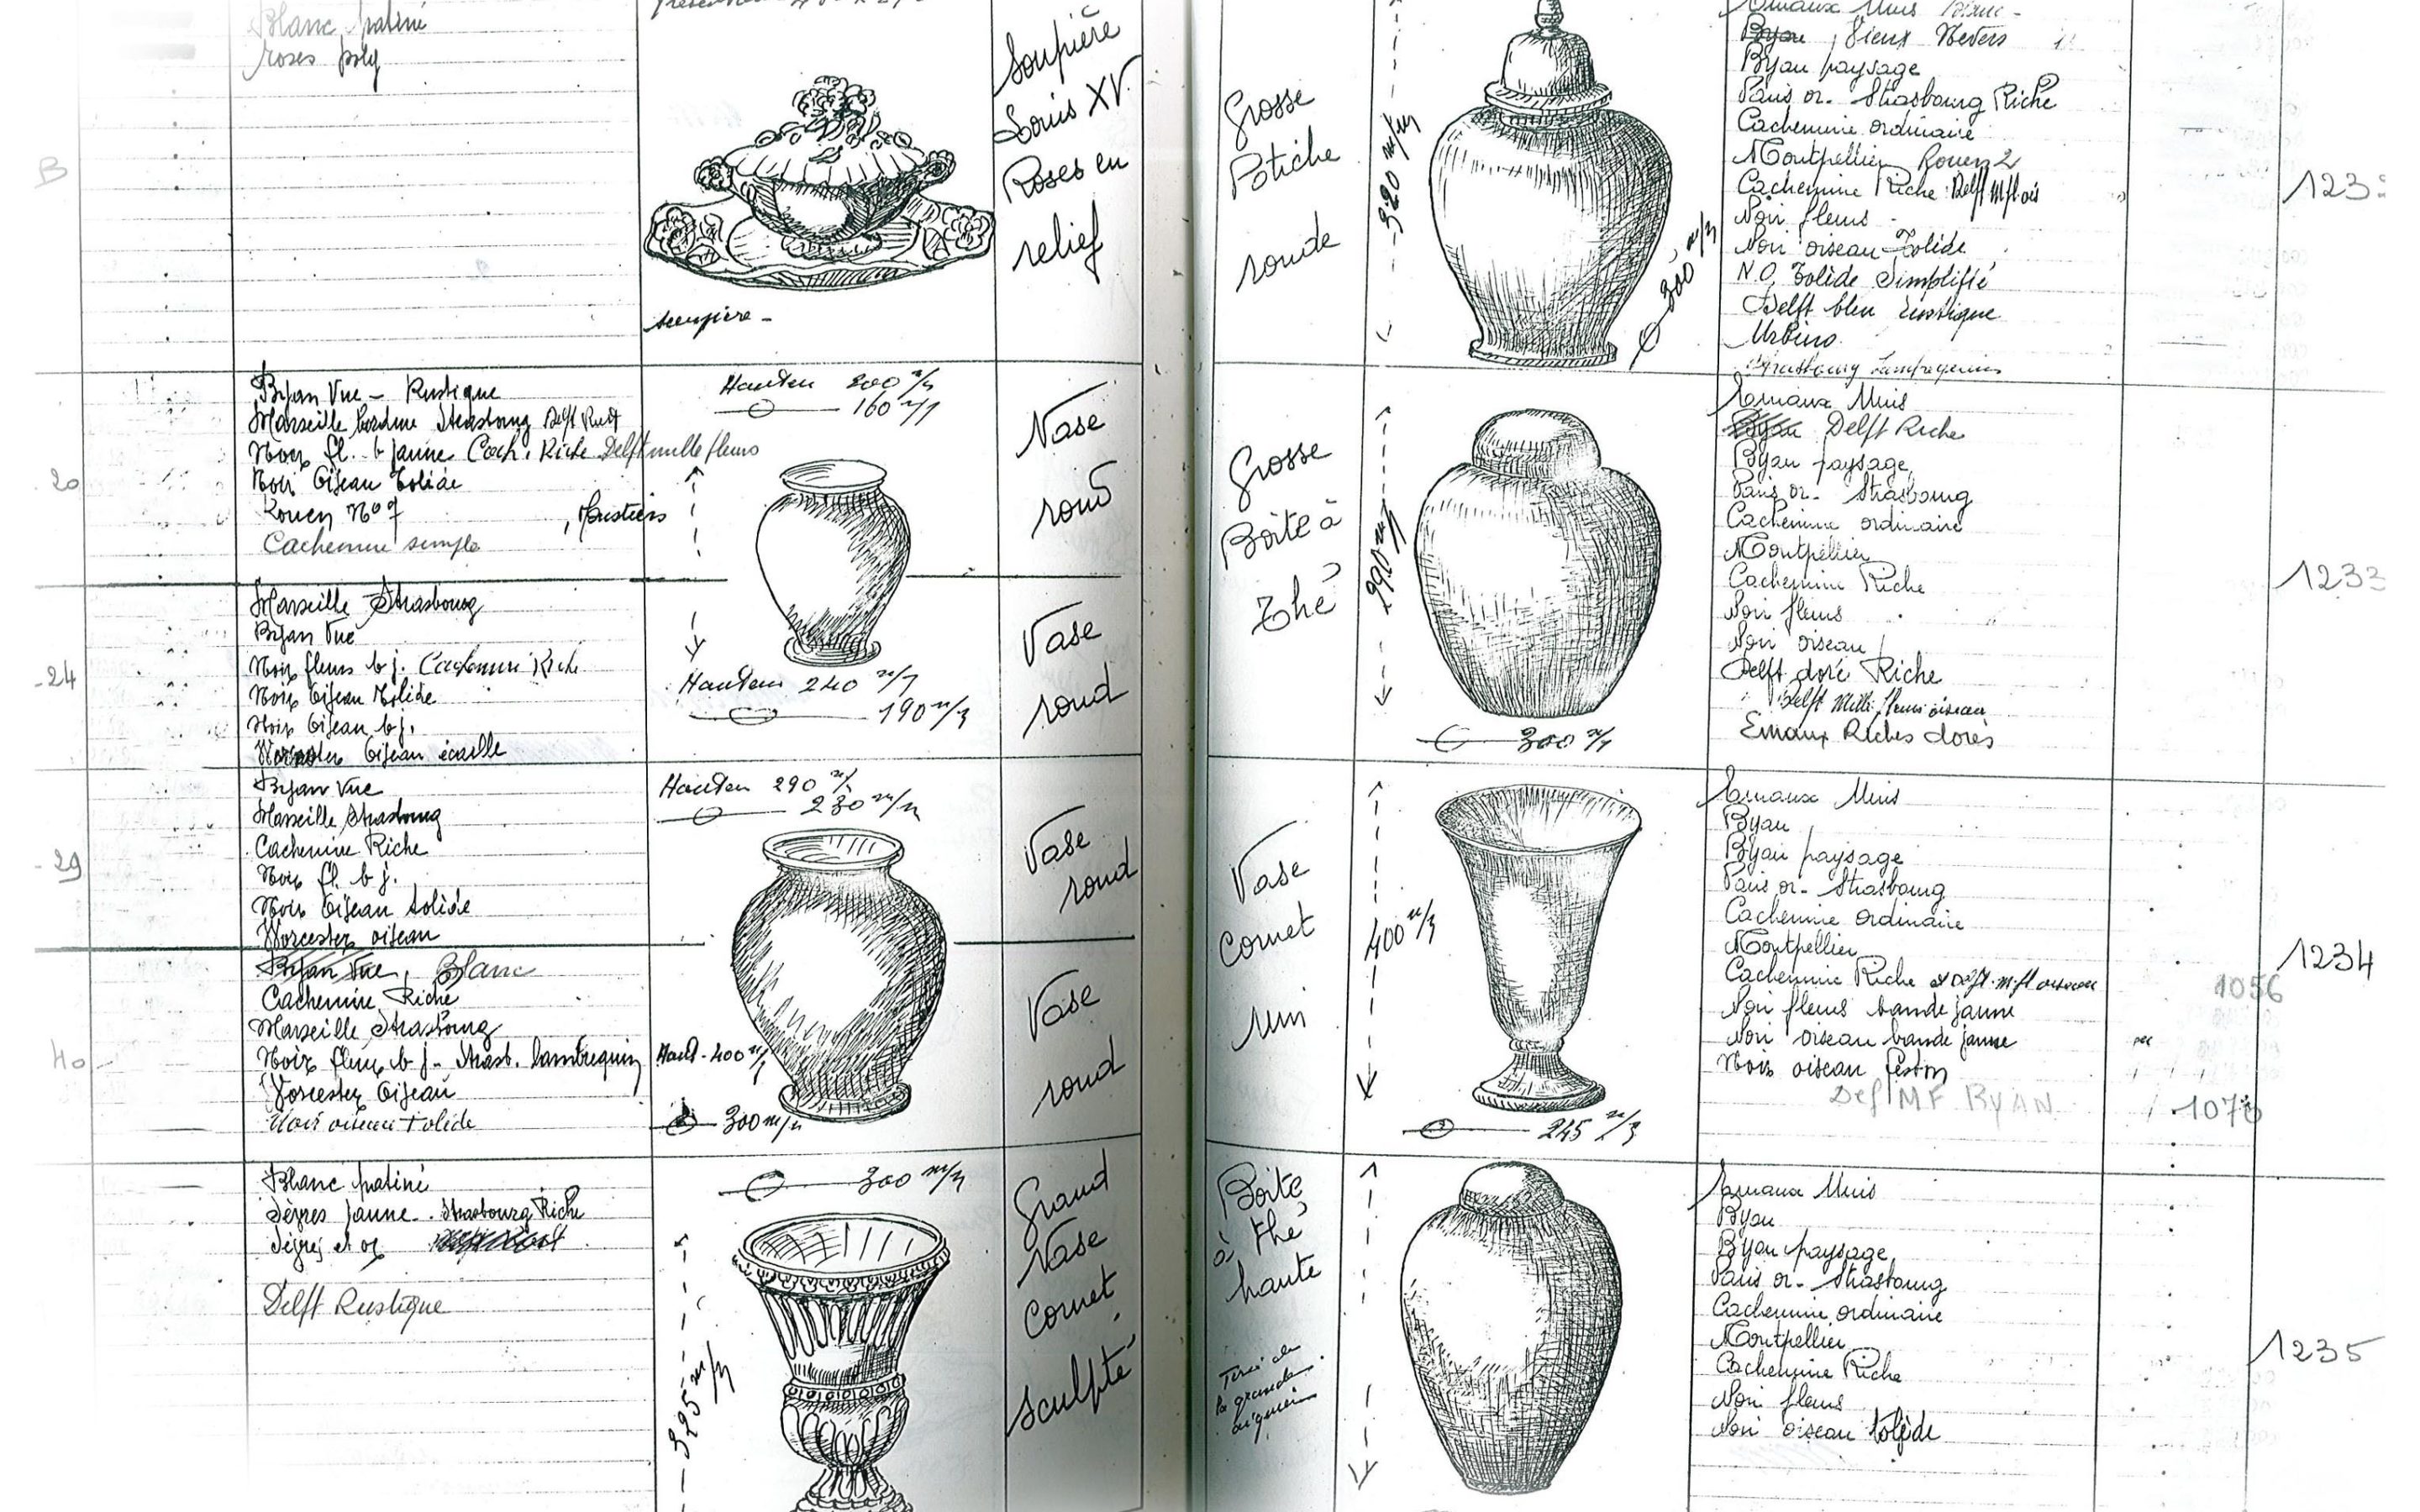 Blanc patiné
roses poly
B
soupière -
Soupière
Louis XV.
Roses en
relief
20
Byan Vue - Rustique
Marseille bordure Strasbourg Delft Rust
Noir fl. b jaune Cach. Riche Delft mille fleurs
Noir Oiseau Tolède
Rouen N° 7 , Moustiers
Cachemire simple
Hauteur 200 m/m
160 m/m
Vase
rond
24
Marseille Strasbourg
Byan Vue
Noir fleurs b j. Cachemire Riche
Noir Oiseau Tolède
Noir Oiseau b j.
Worcester Oiseau écaille
Hauteur 240 m/m
190 m/m
Vase
rond
29
Byan Vue
Marseille Strasbourg
Cachemire Riche
Noir fl. b j.
Noir Oiseau tolède
Worcester oiseau
Hauteur 290 m/m
230 m/m
Vase
rond
40
Byan Vue, Blanc
Cachemire Riche
Marseille Strasbourg
Noir fleurs b j - Strasb. lambrequin
Worcester Oiseau
Noir oiseau tolède
Haut - 400 m/m
300 m/m
Vase
rond
Blanc patiné
Sèvres jaune - Strasbourg Riche
Sèvres et or
Delft Rustique
300 m/m
325 m/m
Grand
Vase
Cornet
sculpté
Grosse
Potiche
ronde
320 m/m
300 m/m
Emaux Unis Blanc -
Byan, Vieux Nevers
Byan paysage
Paris or - Strasbourg Riche
Cachemire ordinaire
Montpellier Rouen 2
Cachemire Riche Delft M fl ois
Noir fleurs -
Noir oiseau Tolède
N.O. Tolède Simplifié
Delft bleu rustique
Urbino
Strasbourg Lambrequins
123
Grosse
Boîte à
Thé
290 m/m
300 m/m
Emaux Unis
Byan Delft Riche
Byan paysage
Paris or - Strasbourg
Cachemire ordinaire
Montpellier
Cachemire Riche
Noir fleurs
Noir oiseau
Delft doré Riche
Delft Mille fleurs oiseau
Emaux Riches dorés
1233
Vase
Cornet
Uni
400 m/m
245 m/m
Emaux Unis
Byan
Byan paysage
Paris or - Strasbourg
Cachemire ordinaire
Montpellier
Cachemire Riche et Delft m fl oiseau
Noir fleurs bande jaune
Noir oiseau bande jaune
Noir oiseau feston
Def MF BYAN
1056
1070
1234
Boite
à thé
haute
Tiré de
la grande
aiguière
Emaux Unis
Byan
Byan paysage
Paris or - Strasbourg
Cachemire ordinaire
Montpellier
Cachemire Riche
Noir fleurs
Noir oiseau tolède
1235